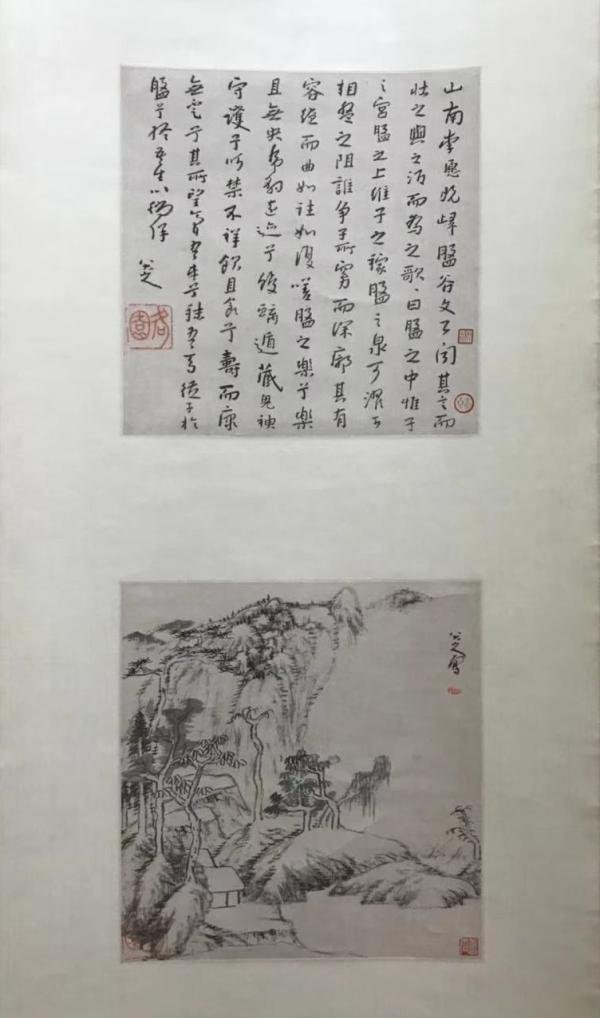 山南李愿歸盤谷文公聞其言而
壯之與之酒而為之歌曰盤之中惟子
之宮盤之土維子之稼盤之泉可濯可
盤之阻誰爭子所窈而深廓其有
容繚而曲如往如復嗟盤之樂兮樂
且無央虎豹遠迹兮蛟螭遁藏鬼神
守護兮呵禁不祥飲且食兮壽而康
無不足兮奚所望膏吾車兮秣吾馬從子於
盤兮終吾生以徜徉
八大山人
八大山人寫